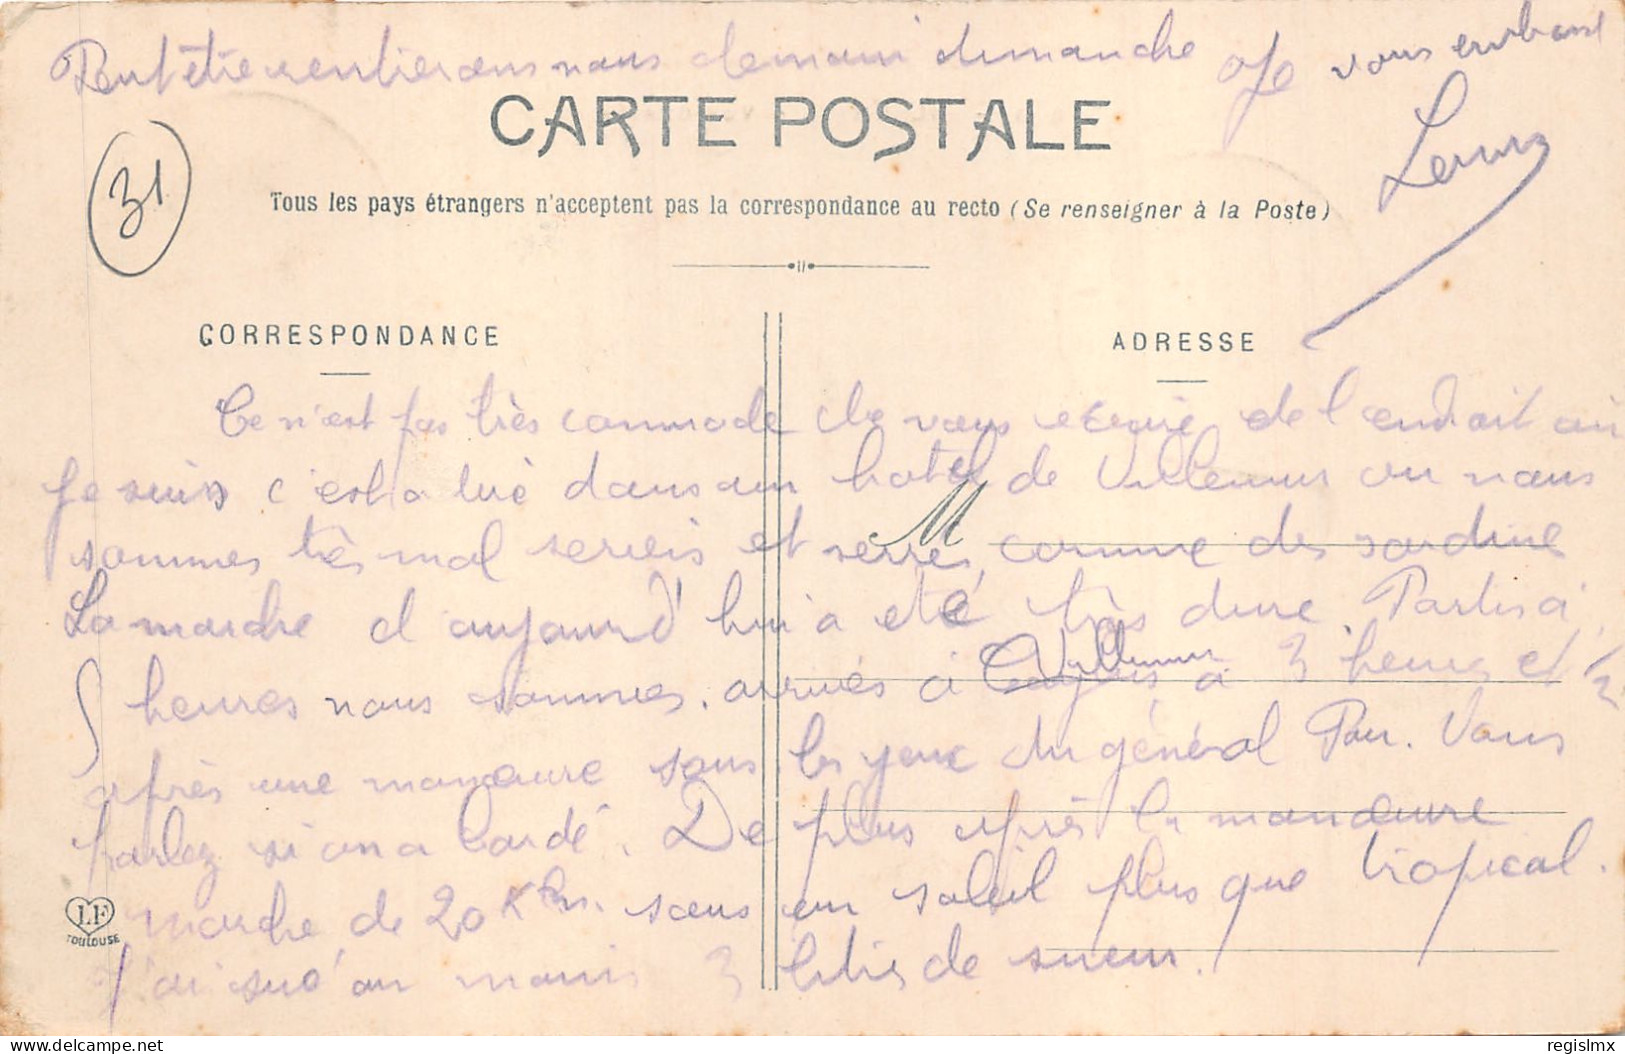 Peut être rentrerons nous demain dimanche Je vous embrasse
CARTE POSTALE
31
Tous les pays étrangers n'acceptent pas la correspondance au recto (Se renseigner à la Poste)
CORRESPONDANCE
ADRESSE
Ce n'est pas très commode de vous ecrire de l'endroit ou
je suis c'est a lire dans un hotel de Villemur ou nous
sommes très mal servis et serrés comme des sardine
M
La marche d'aujourd'hui a eté très dure. Partis à
5 heures nous sommes arrivés à Villemur à 3 heures et 1/2
après une manœuvre sous les yeux du général Pau. Vous
parlez si on a bardé. De plus après la manœuvre
marche de 20 Km. sous un soleil plus que tropical.
J'ai sué au moins 3 litres de sueur.
LF
TOULOUSE
delcampe.net
regislmx